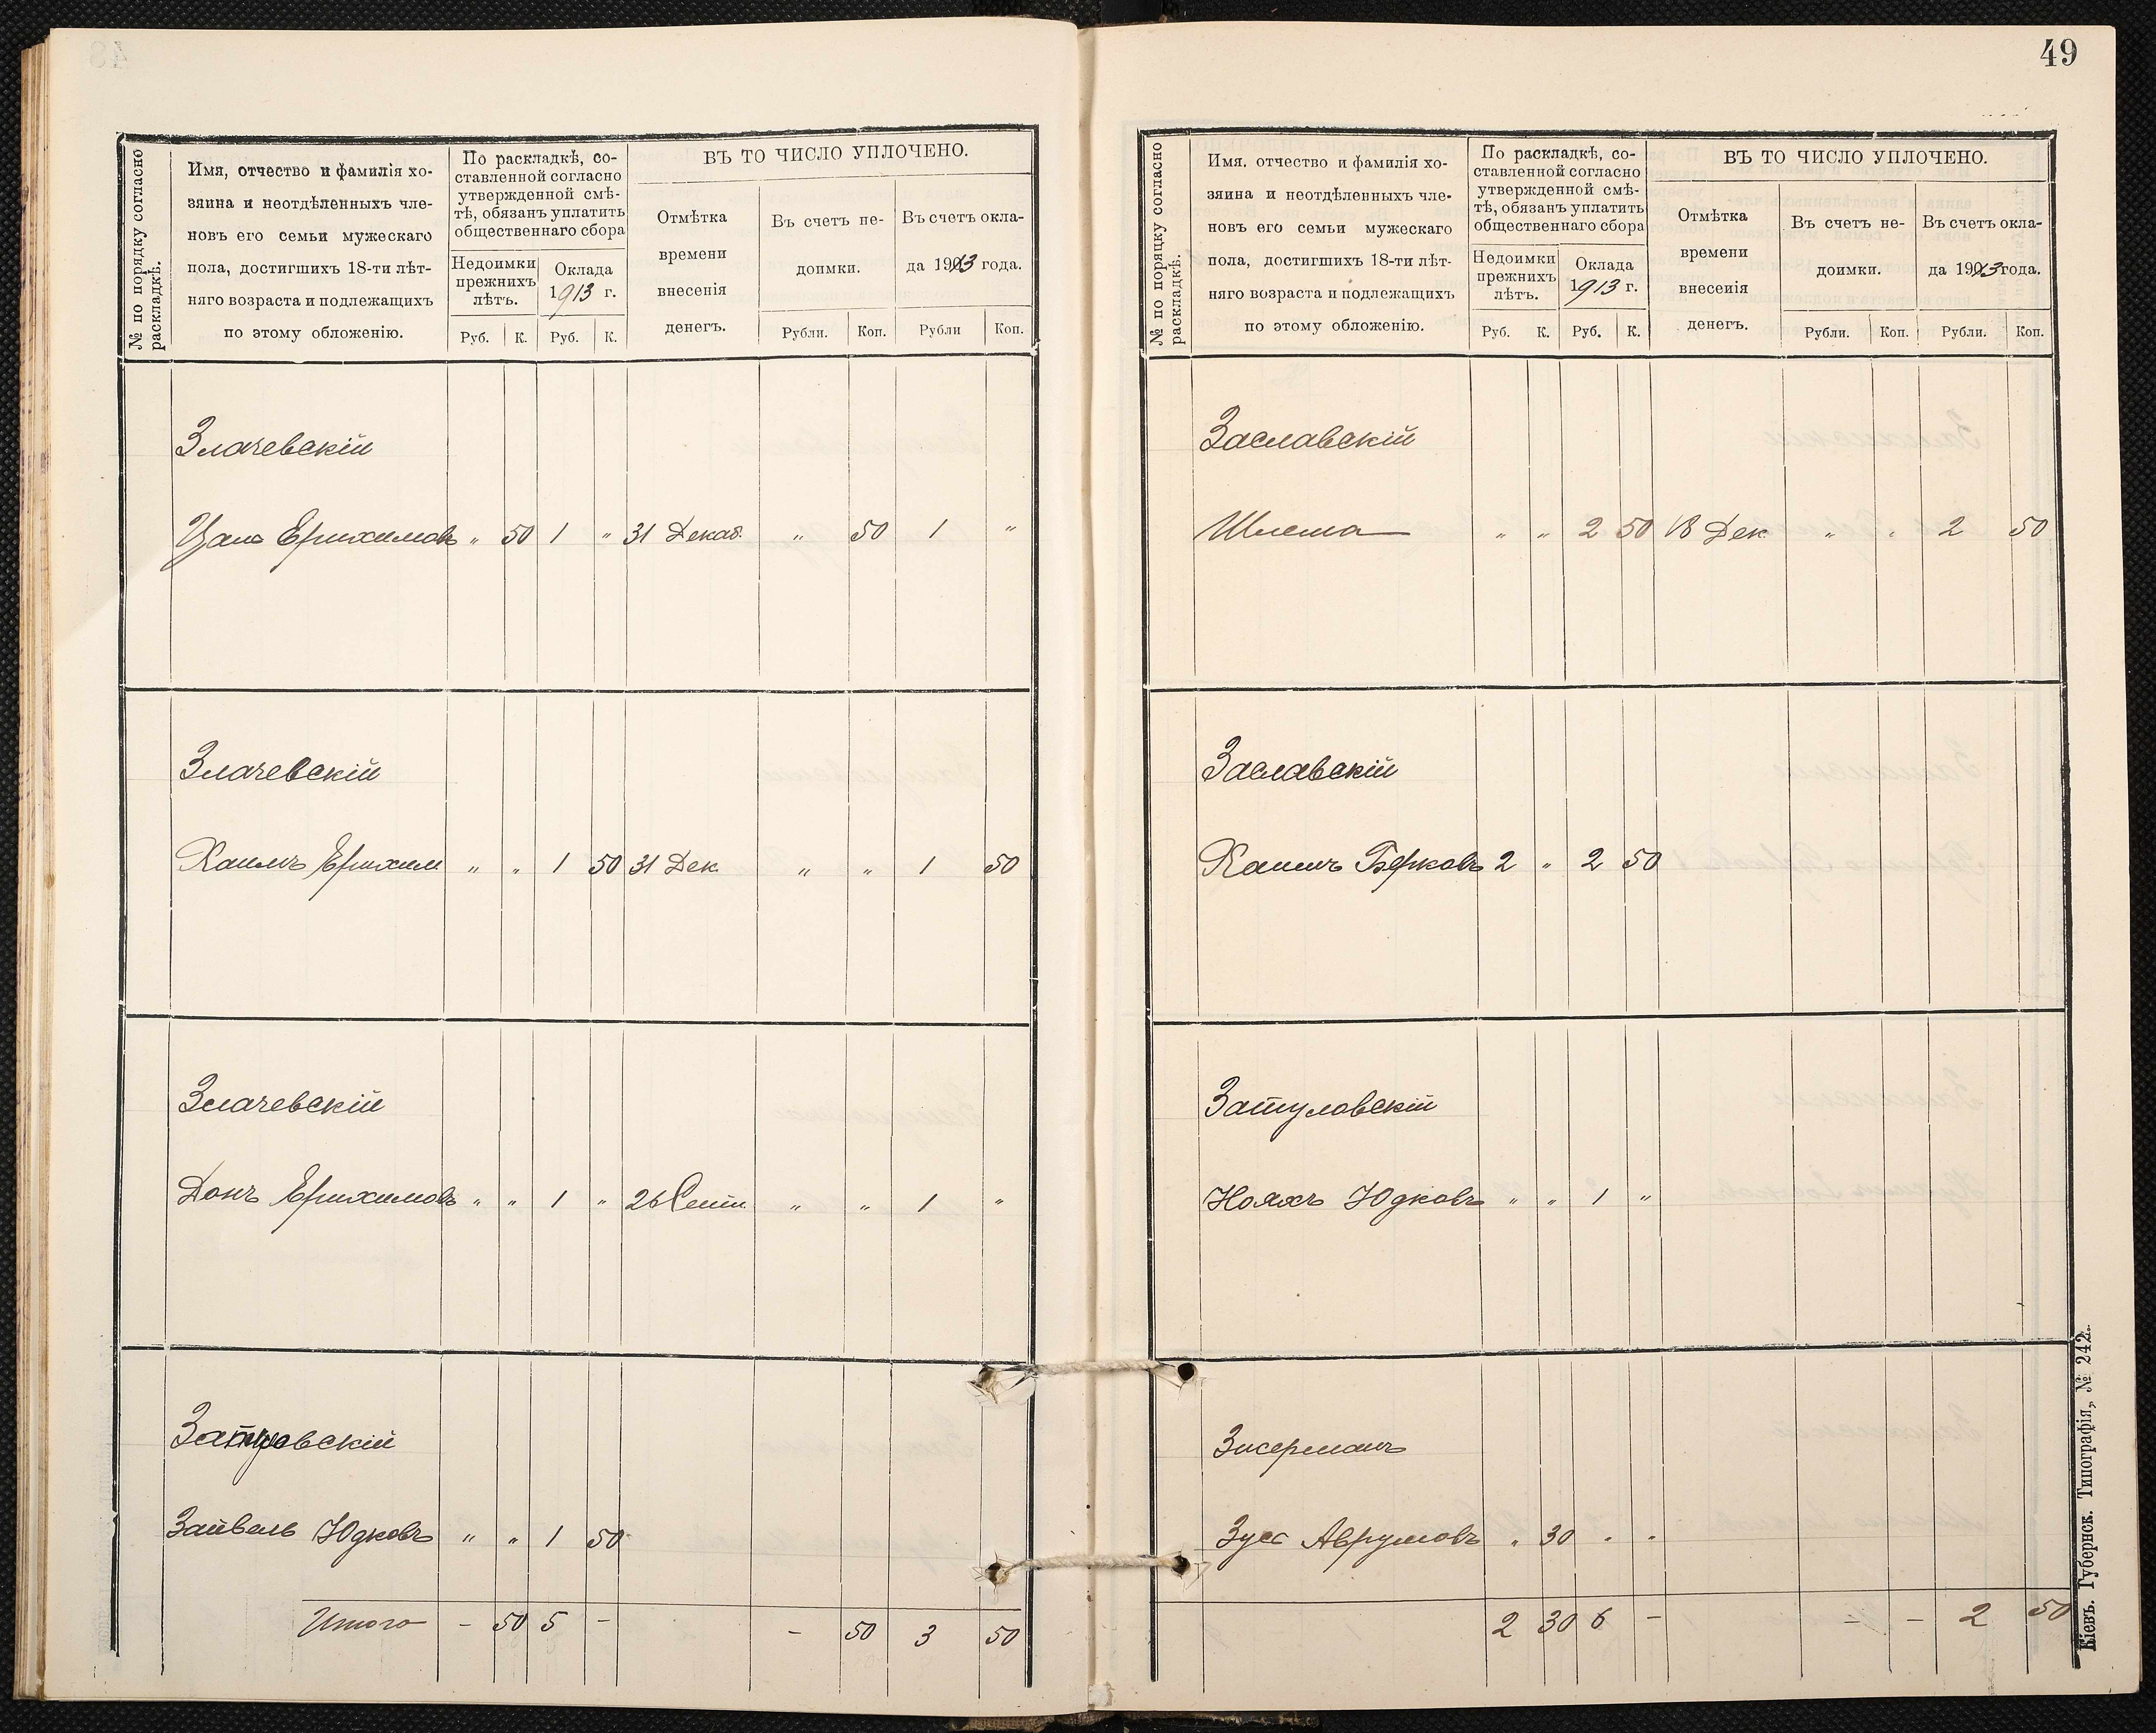 49
№ по порядку согласно раскладкѣ.
Имя, отчество и фамилія хо-
зяина и неотдѣленныхъ чле-
новъ его семьи мужескаго
пола, достигшихъ 18-ти лѣт-
няго возраста и подлежащихъ
по этому обложенію.
По раскладкѣ, со-
ставленной согласно
утвержденной смѣ-
тѣ, обязанъ уплатить
общественнаго сбора
Недоимки прежнихъ лѣтъ.
Оклада 1913 г.
Руб. К. Руб. К.
ВЪ ТО ЧИСЛО УПЛОЧЕНО.
Отмѣтка
времени
внесенія
денегъ.
Въ счетъ не-
доимки.
Въ счетъ окла-
да 1913 года.
Рубли. Коп. Рубли Коп.
Злачевскій
Ерихимовъ „ 50 1 „ 31 Декаб. „ 50 1 „
Злачевскій
Хаимъ Ерихим „ „ 1 50 31 Дек. „ „ 1 50
Злачевскій
Донъ Ерихимовъ „ „ 1 „ 26 Сент. „ „ 1 „
Зайвель Юдковъ „ „ 1 50
Итого - 50 5 - - 50 3 50
№ по порядку согласно раскладкѣ.
Имя, отчество и фамилія хо-
зяина и неотдѣленныхъ чле-
новъ его семьи мужескаго
пола, достигшихъ 18-ти лѣт-
няго возраста и подлежащихъ
по этому обложенію.
По раскладкѣ, со-
ставленной согласно
утвержденной смѣ-
тѣ, обязанъ уплатить
общественнаго сбора
Недоимки прежнихъ лѣтъ.
Оклада 1913 г.
Руб. К. Руб. К.
ВЪ ТО ЧИСЛО УПЛОЧЕНО.
Отмѣтка
времени
внесенія
денегъ.
Въ счетъ не-
доимки.
Въ счетъ окла-
да 1913 года.
Рубли. Коп. Рубли. Коп.
Заславскій
Шлема „ „ 2 50 18 Дек „ „ 2 50
Заславскій
Хаимъ Берковъ 2 „ 2 50
Затуловскій
Нояхъ Юдковъ „ „ 1 „
Зисерманъ
Зусь Аврумовъ „ 30 „ „
2 30 6 - - - 2 50
Кіевъ. Губернск. Типографія, № 242.